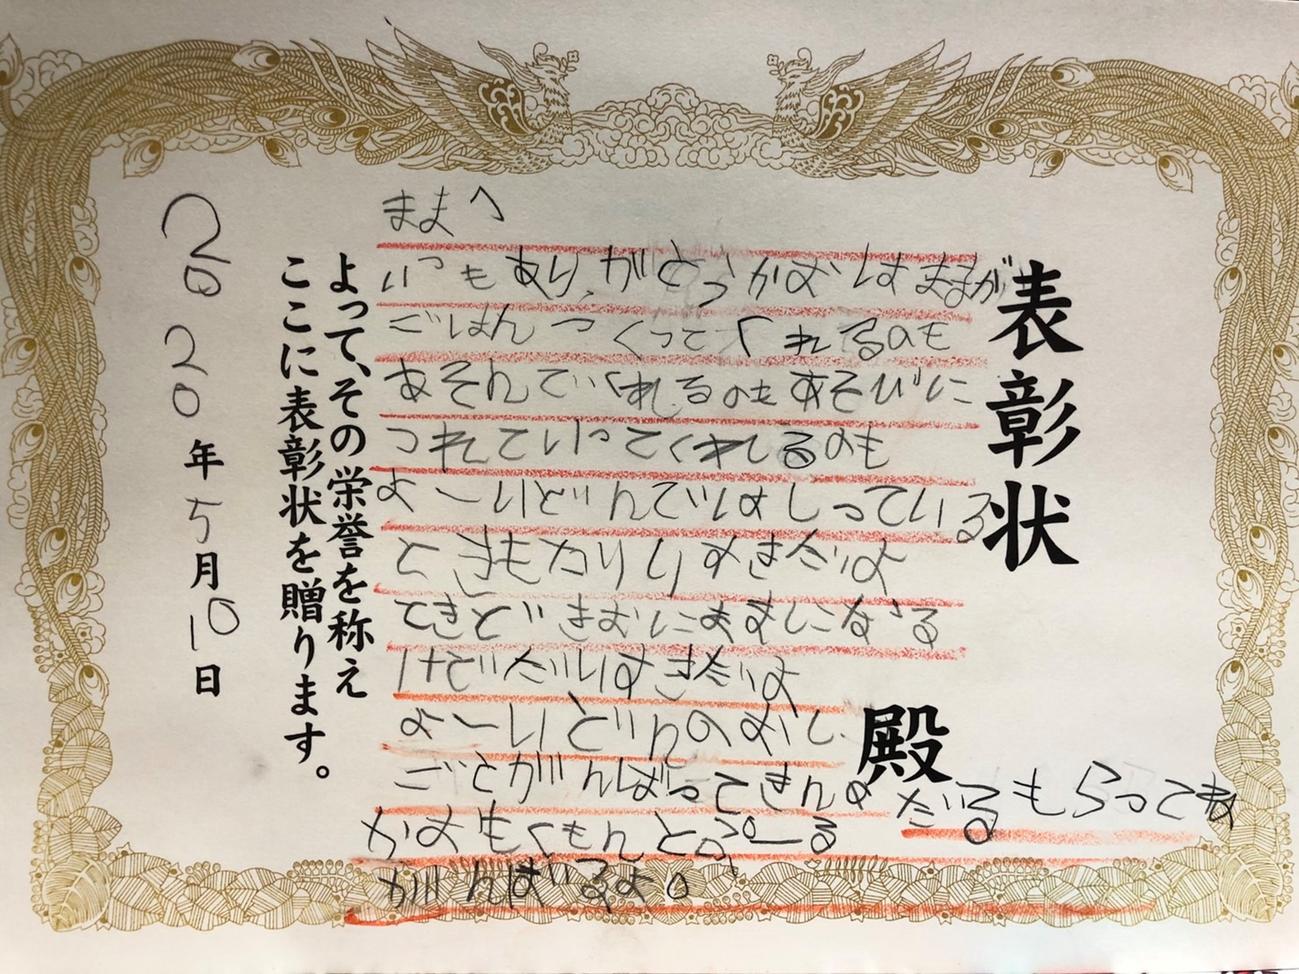 表彰状
殿
ままへ
いつもありがとうかおはままが
ごはんつくってくれるのも
あそんでくれるのもあそびに
つれていってくれるのも
よーいどんではしっている
ときもかりりすきだよ
てきどきおにままになる
けどだいすきだよ
よーいどんのおし
ごとがんばってきんめだるもらってね
かおもくもんとぷーる
がんばるよ。
よって、その栄誉を称え
ここに表彰状を贈ります。
2020年5月10日